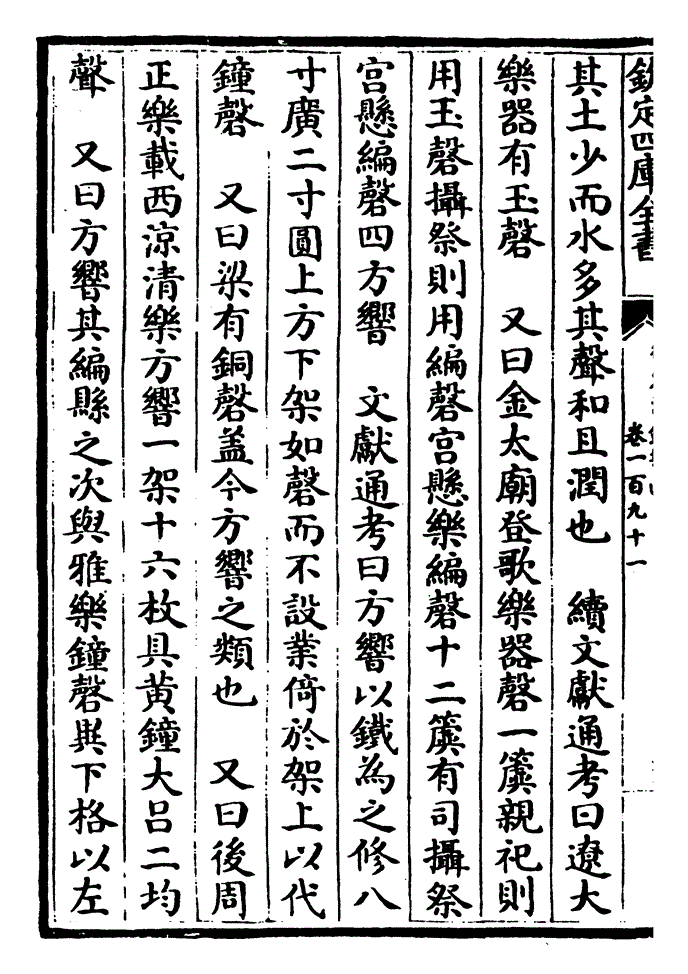 欽定四庫全書
卷一百九十一
其土少而水多其聲和且潤也　續文獻通考曰遼大
樂器有玉磬　又曰金太廟登歌樂器磬一簴親祀則
用玉磬攝祭則用編磬宫懸樂編磬十二簴有司攝祭
宫懸編磬四方響　文獻通考曰方響以鐵為之修八
寸廣二寸圓上方下架如磬而不設業倚於架上以代
鐘磬　又曰梁有銅磬盖今方響之類也　又曰後周
正樂載西涼清樂方響一架十六枚具黄鐘大吕二均
聲　又曰方響其編縣之次與雅樂鐘磬異下格以左